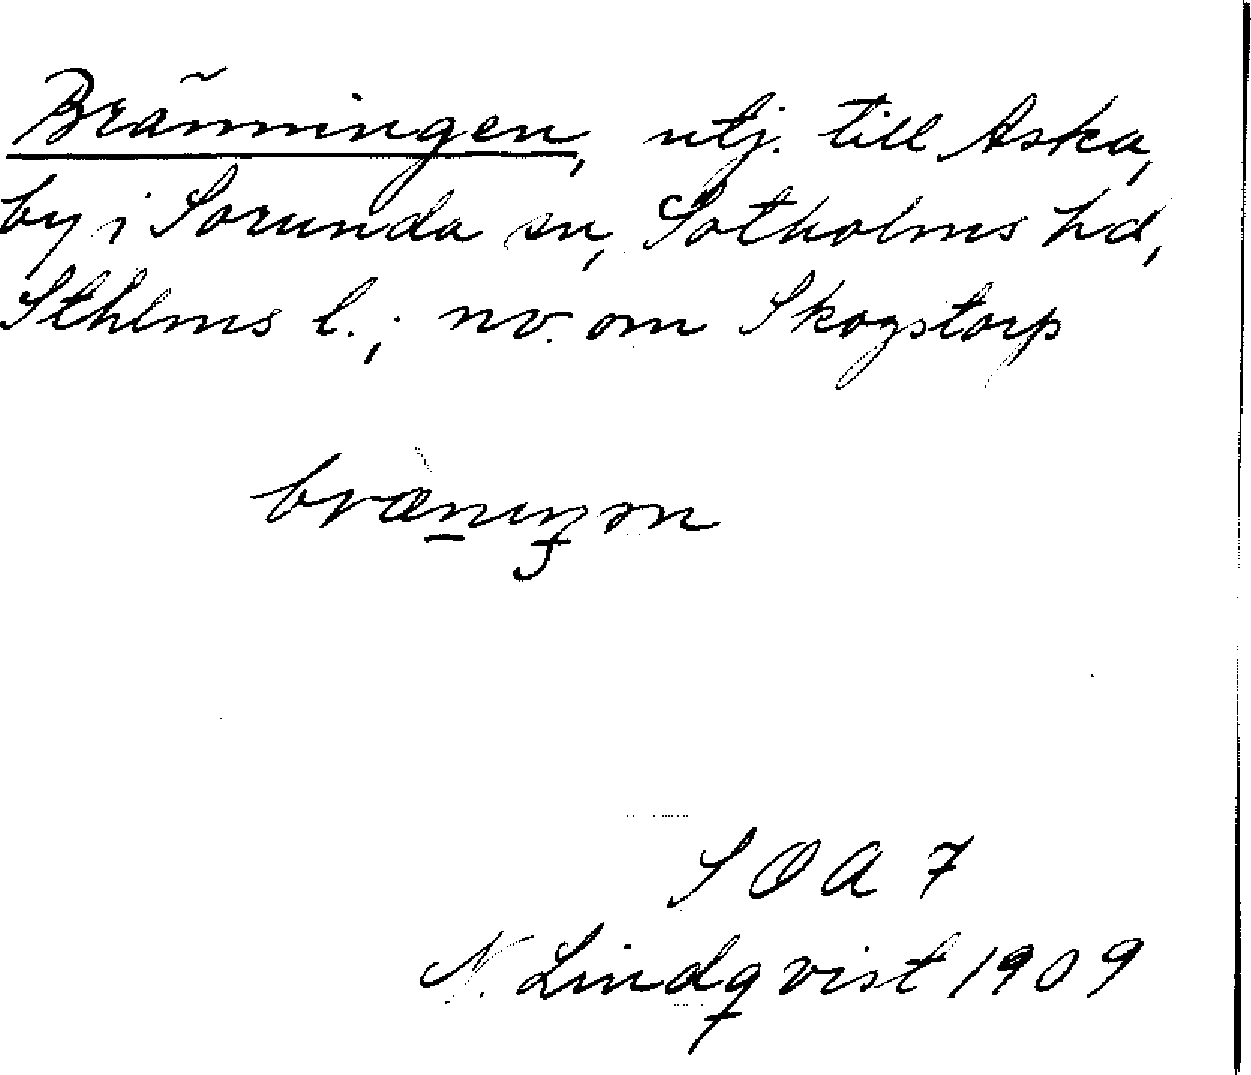 Bränningen, utj. till Aska,
by i Sorunda sn, Sotholms hd,
Sthlms l.; nv. om Skogstorp
bræ̀nıŋən
SOA 7
N. Lindqvist 1909